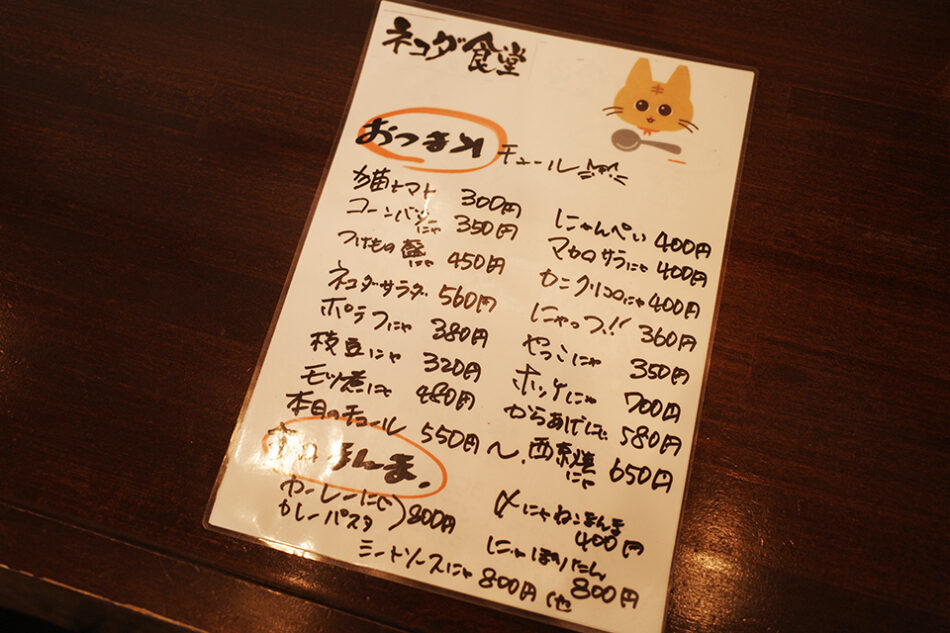 ネコダ食堂
おつまみ チュール
猫トマト 300円
コーンバターにゃ 350円
つけもの盛にゃ 450円
ネコダサラダ 560円
ポテフにゃ 380円
枝豆にゃ 320円
モツ煮にゃ 480円
本日のチュール 550円〜
にゃんぺい 400円
マカロサラにゃ 400円
カニクリコロにゃ 400円
にゃっつ!! 360円
やっこにゃ 350円
ホッケにゃ 700円
からあげにゃ 580円
西京焼にゃ 650円
まんま
カレーにゃ 800円
カレーパスタ
〆にゃねこまんま
400円
にゃぽりたん
800円
ミートソースにゃ 800円 他